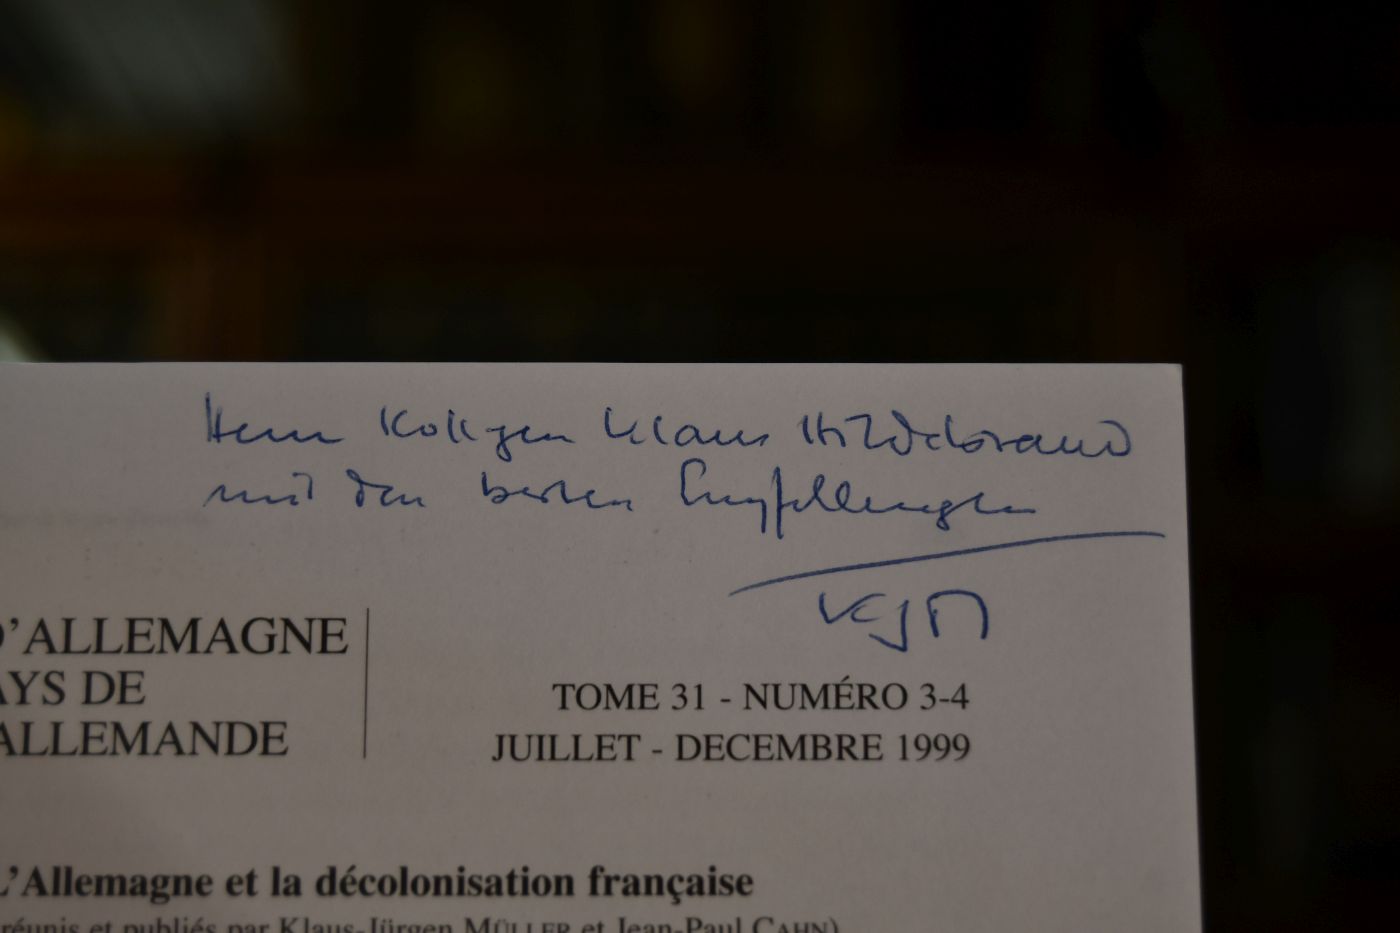 Herrn Kollegen Klaus Hildebrand
mit den besten Empfehlungen
KJM
D'ALLEMAGNE
AYS DE
ALLEMANDE
TOME 31 - NUMÉRO 3-4
JUILLET - DECEMBRE 1999
L'Allemagne et la décolonisation française
réunis et publiés par Klaus-Jürgen MÜLLER et Jean-Paul CAHN)